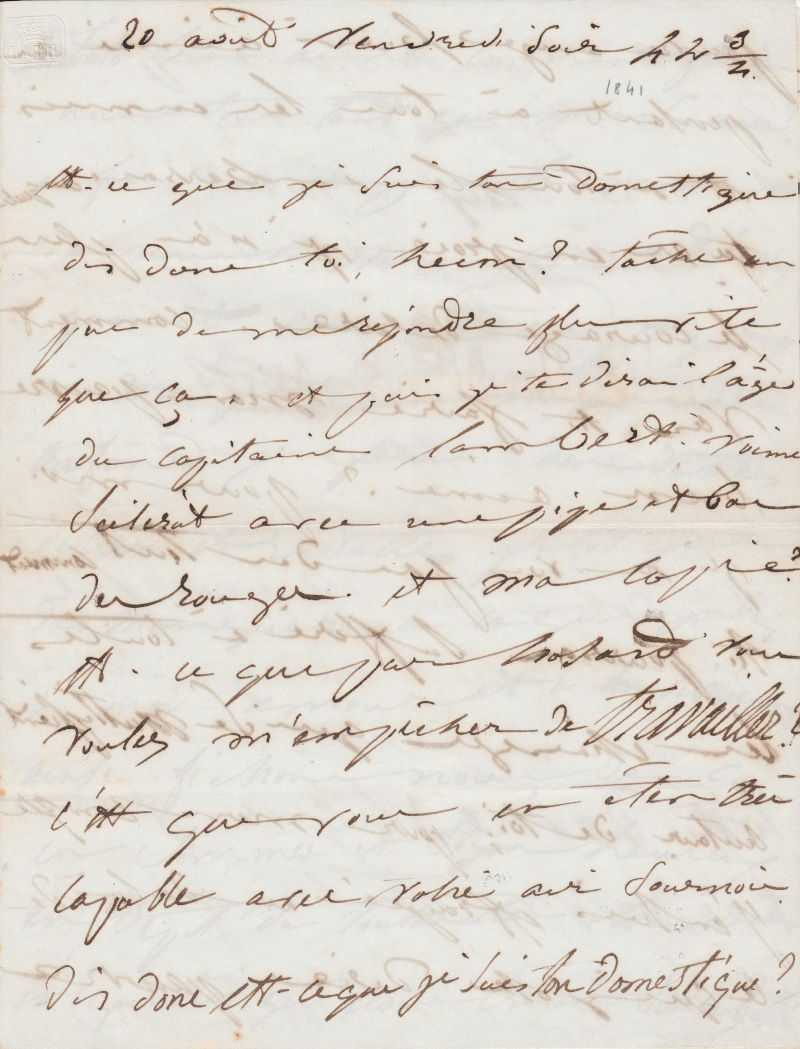 20 août Vendredi soir 11h 3/4.
1841
Est-ce que je suis ton Domestique
dis donc toi, hein? tâche un
peu de me répondre plus vite
que ça. et puis je te dirai l'âge
du capitaine lambert. voime
scélérat avec une pipe et bas
de rouges. et ma copie?
Est-ce que par hasard vous
voulez m'empêcher de travailler?
c'est que vous en êtes très
capable avec votre air sournois
Dis donc est-ce que je suis ton Domestique?